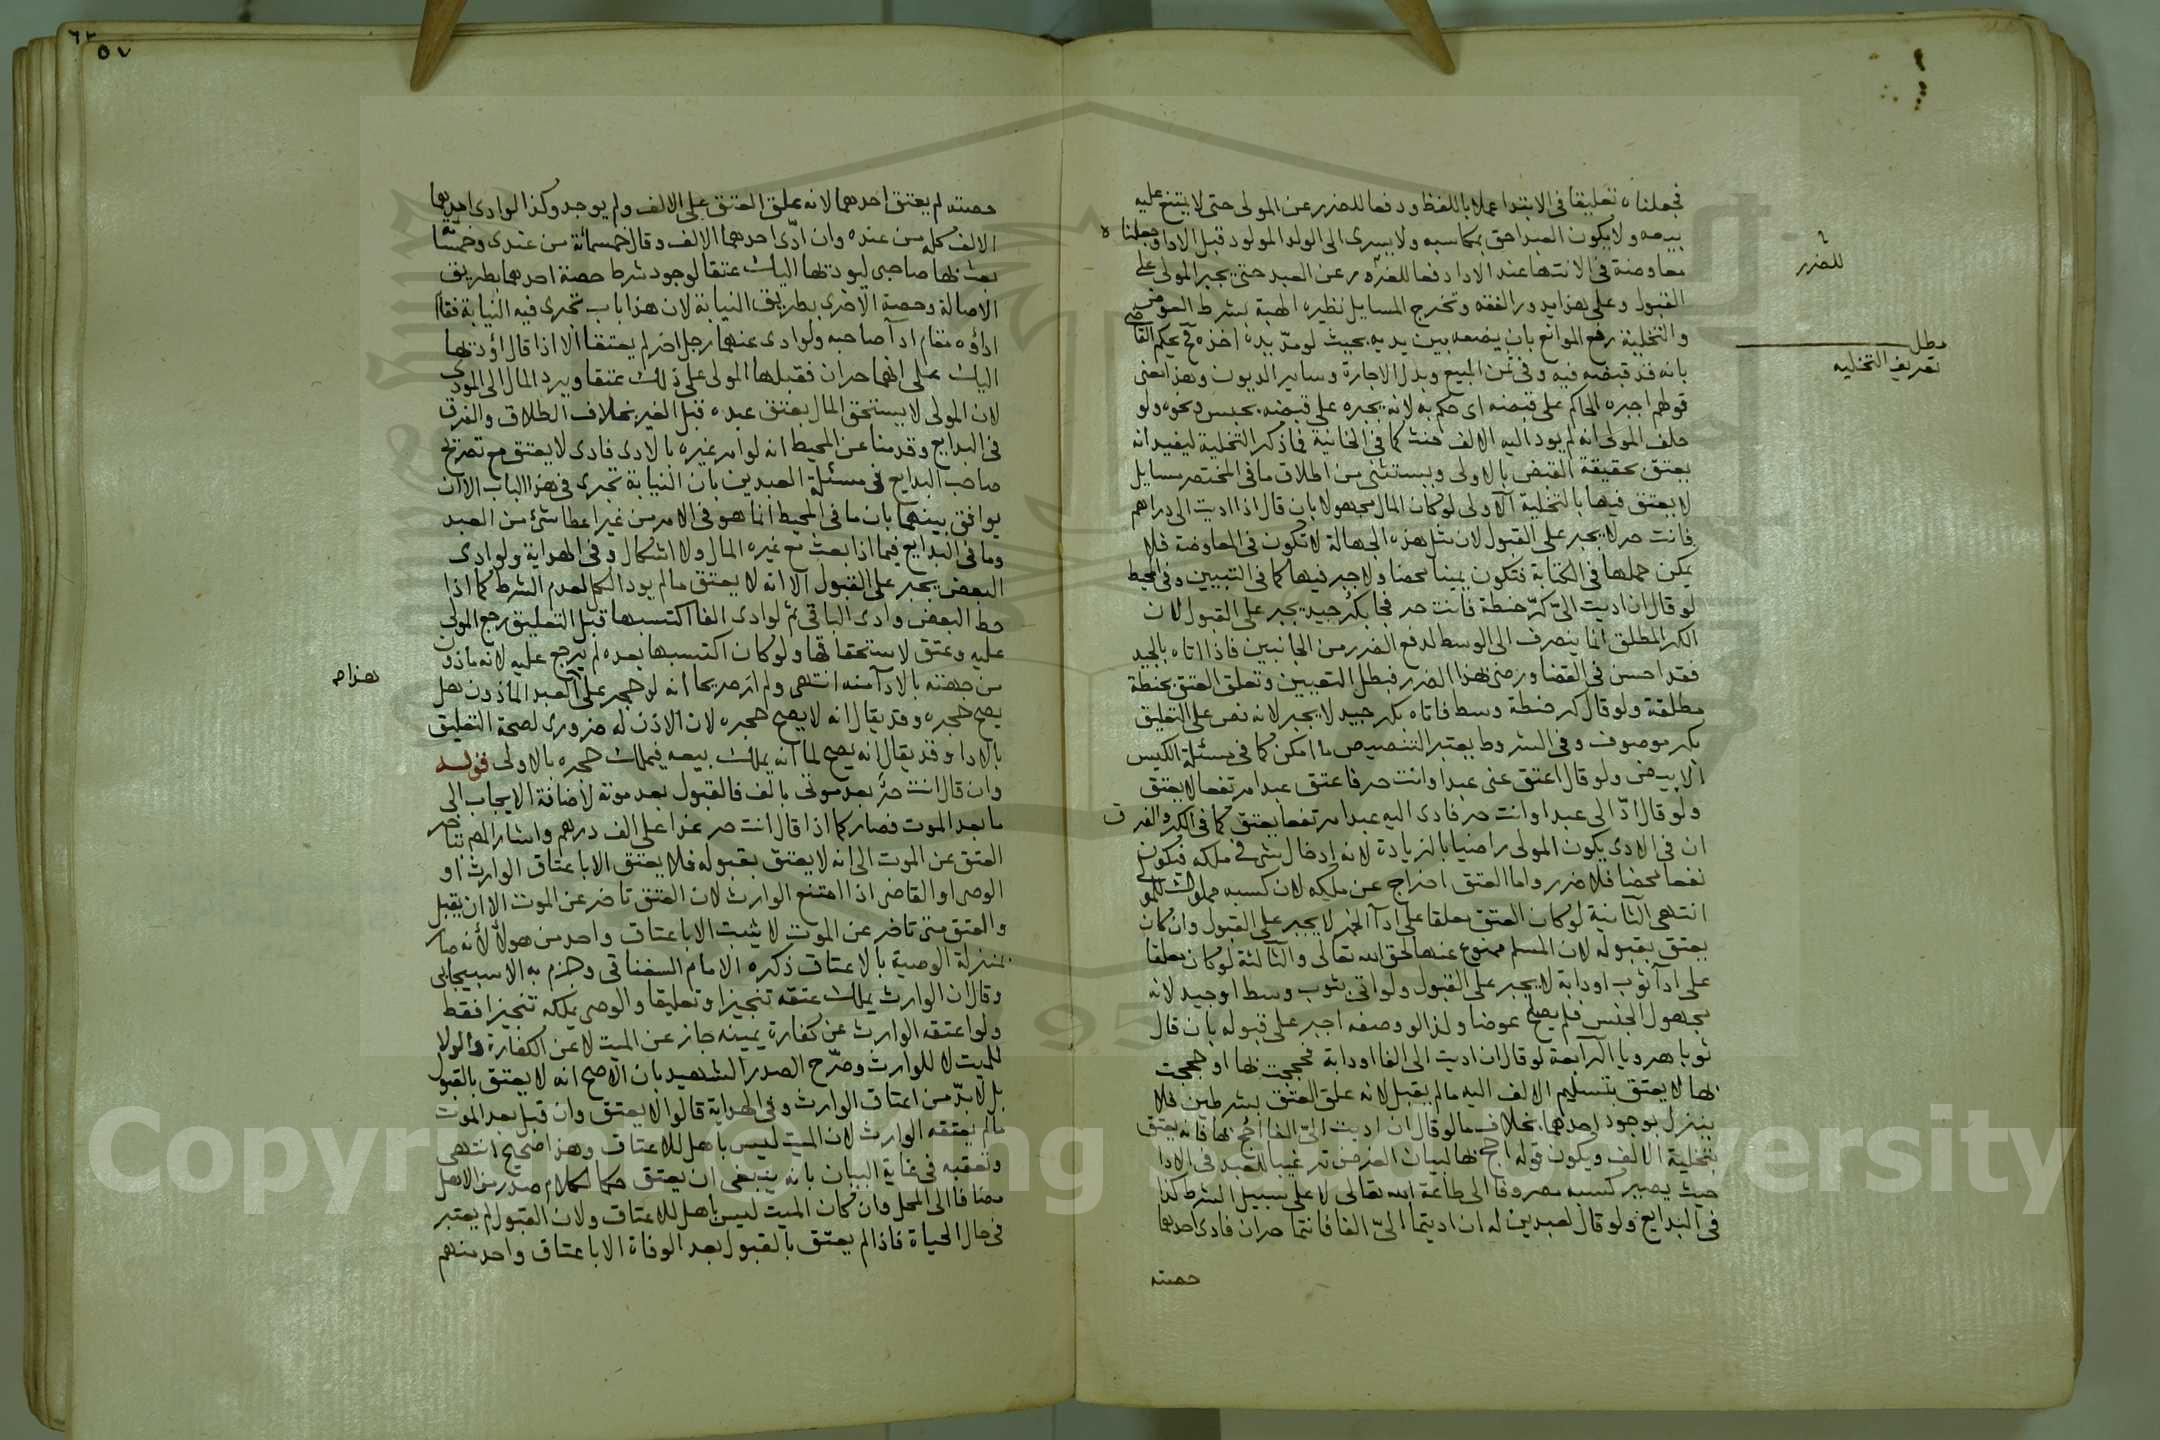 فجعلناه تعليقا في الابتدا عملا باللفظ ودفعا للضرر عن المولى حتى لا يمتنع عليه
بيعه ولا يكون العبد احق بمكاسبه ولا يسرى الى الولد المولود قبل الادا وجعلناه
معاوضة في الانتها عند الادا دفعا للغرور عن العبد حتى يجبر المولى على
القبول وعلى هذا يدور الفقه وتخرج المسايل نظيره الهبة بشرط العوض
والتخلية رفع الموانع بان يضعه بين يديه بحيث لو مد يده اخذه فح يحكم القاضي
بانه قد قبضه فيه وفي ثمن المبيع وبدل الاجارة وساير الديون وهذا معنى
قولهم اجبره الحاكم على قبضه اى حكم به لانه يجبره على قبضه بحبس ونحوه ولو
حلف المولى انه لم يود اليه الالف حنث كما في الخانية فما ذكر التخلية ليفيد انه
يعتق بحقيقة القبض بالاولى ويستثنى من اطلاق ما في المختصر مسايل
لا يعتق فيها بالتخلية الاولى لو كان المال مجهولا بان قال اذا اديت الى دراهم
فانت حر لا يجبر على القبول لان مثل هذه الجهالة لا تكون في المعاوضة فلا
يمكن حملها في الكتابة فتكون يمينا محضا ولا جبر فيها كما في التبيين وفي المحيط
لو قال ان اديت الىّ كرّ حنطة فانت حر فجا بكر جيد يجبر على القبول لان
الكر المطلق انما ينصرف الى الوسط لدفع الضرر من الجانبين فاذا اتاه بالجيد
فقد احسن في القضا ورضى بهذا الضرر فبطل التعيين وتعلق العتق بحنطة
مطلقة ولو قال كر حنطة وسط فاتاه بكر جيد لا يجبر لانه نص على التعليق
بكر موصوف وفي الشروط يعتبر التنصيص ما امكن كما في مسئلة الكيس
الابيض ولو قال اعتق عنى عبدا وانت حر فاعتق عبدا مرتفعا لا يعتق
ولو قال ادّ الى عبدا وانت حر فادى اليه عبدا مرتفعا يعتق كما في الكر والفرق
ان في الادى يكون المولى راضيا بالزيادة لانه ادخال شى في ملكه فيكون
نفعا محضا فلا ضرر واما العتق اخراج عن ملكه لان كسبه مملوك للمولى
انتهى الثانية لو كان العتق معلقا على ادآ الخمر لا يجبر على القبول وان كان
يعتق بقبوله لان المسلم ممنوع عنها لحق الله تعالى والثالثة لو كان معلقا
على ادآ ثوب او دابة لا يجبر على القبول ولو اتى بثوب وسط او جيد لانه
مجهول الجنس فلم يصلح عوضا ولذا لو وصفه اجبر على قبوله بان قال
ثوبا هرويا الرابعة لو قال ان اديت الى الفا او دابة فحججت بها او حججت
بها لا يعتق بتسليم الالف اليه ما لم يقبل لانه علق العتق بشرطين فلا
ينزل بوجود احدهما بخلاف ما لو قال ان اديت الىّ الفا احج بها فانه يعتق
بتخلية الالف ويكون قوله احج بها لبيان الغرض ترغيبا للعبد في الادا
حيث يصير كسبه مصروفا الى طاعة الله تعالى لا على سبيل الشرط كذا
في البدايع ولو قال لعبدين له ان اديتما الىّ الفا فانتما حران فادى احدهما
حصته
للضرر
مطل
تعريف التخليه
٥٧
حصته لم يعتق احدهما لانه علق العتق على الالف ولم يوجد وكذا لو ادى احدهما
الالف كله من عنده وان ادّى احدهما الالف وقال خمسمائة من عندى وخمسمائة
بعث بها صاحبى ليوديها اليك عتقا لوجود شرط حصة احدهما بطريق
الاصالة وحصة الاخرى بطريق النيابة لان هذا باب تجرى فيه النيابة فقام
اداؤه مقام ادآ صاحبه ولو ادى عنهما رجل اخر لم يعتقا الا اذا قال اؤديها
اليك على انهما حران فقبلها المولى على ذلك عتقا ويرد المال الى المودى
لان المولى لا يستحق المال بعتق عبده قبل الغير بخلاف الطلاق والفرق
في البدايع وقدمنا عن المحيط انه لو امر غيره بالادى فادى لا يعتق مع تصريح
صاحب البدايع في مسئلة العبدين بان النيابة تجرى في هذا الباب الا ان
يوافق بينهما بان ما في المحيط انما هو في الامر من غير اعطا شئ من العبد
وما في البدايع فيما اذا بعث مع غيره المال ولا اشكال وفي الهداية ولو ادى
البعض يجبر على القبول الا انه لا يعتق ما لم يود الكل لعدم الشرط كما اذا
حط البعض وادى الباقى ثم لو ادى الفا اكتسبها قبل التعليق رجع المولى
عليه وعتق لاستحقاقها ولو كان اكتسبها بعده لم يرجع عليه لانه ماذون
من جهته بالادآ منه انتهى ولم ار صريحا انه لو حجر على العبد الماذون هل
يصح حجره وقد يقال انه لا يصح حجره لان الاذن له ضرورى لصحة التعليق
بالادا وقد يقال انه يصح لما انه يملك بيعه فيملك حجره بالاولى قوله
وان قال انت حرّ بعد موتى بالف فالقبول بعد موته لاضافة الايجاب الى
ما بعد الموت فصار كما اذا قال انت حر غدا على الف درهم واشار المص بتاخر
العتق عن الموت الى انه لا يعتق بقبوله فلا يعتق الا باعتاق الوارث او
الوصى او القاضى اذا امتنع الوارث لان العتق تاخر عن الموت الا ان يقبل
والعتق متى تاخر عن الموت لا يثبت الا باعتاق واحد من هولا لانه صار
بمنزلة الوصية بالاعتاق ذكره الامام السغناقى وجزم به الاسبيجابى
وقال ان الوارث يملك عتقه تنجيزا وتعليقا والوصى يملكه تنجيزا فقط
ولو اعتقه الوارث عن كفارة يمينه جاز عن الميت لا عن الكفارة والولا
للميت لا للوارث وصرّح الصدر الشهيد بان الاصح انه لا يعتق بالقبول
بل لا بدّ من اعتاق الوارث وفي الهداية قالوا لا يعتق وان قبل بعد الموت
ما لم يعتقه الوارث لان الميت ليس باهل للاعتاق وهذا صحيح انتهى
وتعقبه في غاية البيان بانه ينبغى ان يعتق حكما لكلام صدر من الاهل
مضافا الى المحل وان كان الميت ليس باهل للاعتاق ولان القبول لم يعتبر
في حال الحياة فاذا لم يعتق بالقبول بعد الوفاة الا باعتاق واحد منهم
Copyright © King Saud University